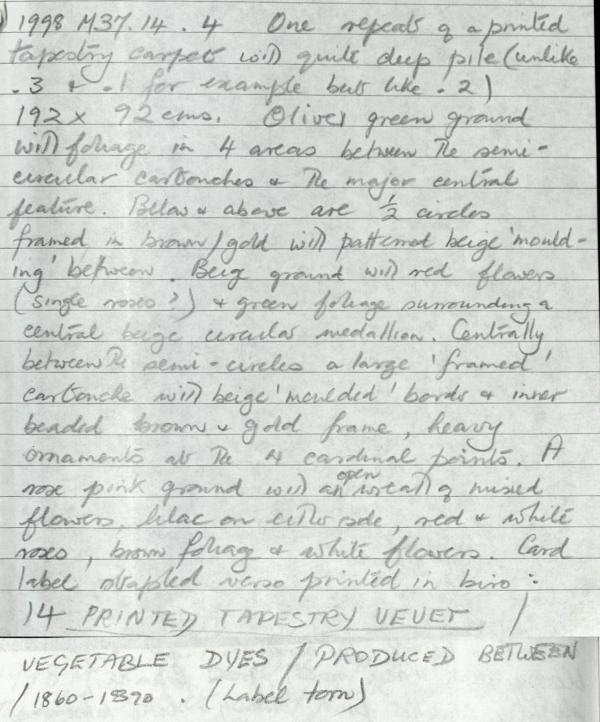 1998 M37.14.4 One repeat of a printed
tapestry carpet with quite deep pile (unlike
.3 & .1 for example but like .2)
192 x 92 cms. Olive green ground
with foliage in 4 areas between the semi-
circular cartouches & the major central
feature. Below & above are ½ circles
framed in brown/gold with patterned beige 'mould-
ing' between. Beige ground with red flowers
(single roses?) & green foliage surrounding a
central beige circular medallion. Centrally
between the semi-circles a large 'framed'
cartouche with beige 'moulded' bords & inner
beaded brown & gold frame, heavy
ornaments at the 4 cardinal points. A
rose pink ground with an open wreath of mixed
flowers, lilac on either side, red & white
roses, brown foliage & white flowers. Card
label strapled verso printed in biro:
14 PRINTED TAPESTRY VEVET /
VEGETABLE DYES / PRODUCED BETWEEN
/ 1860-1890. (Label torn)